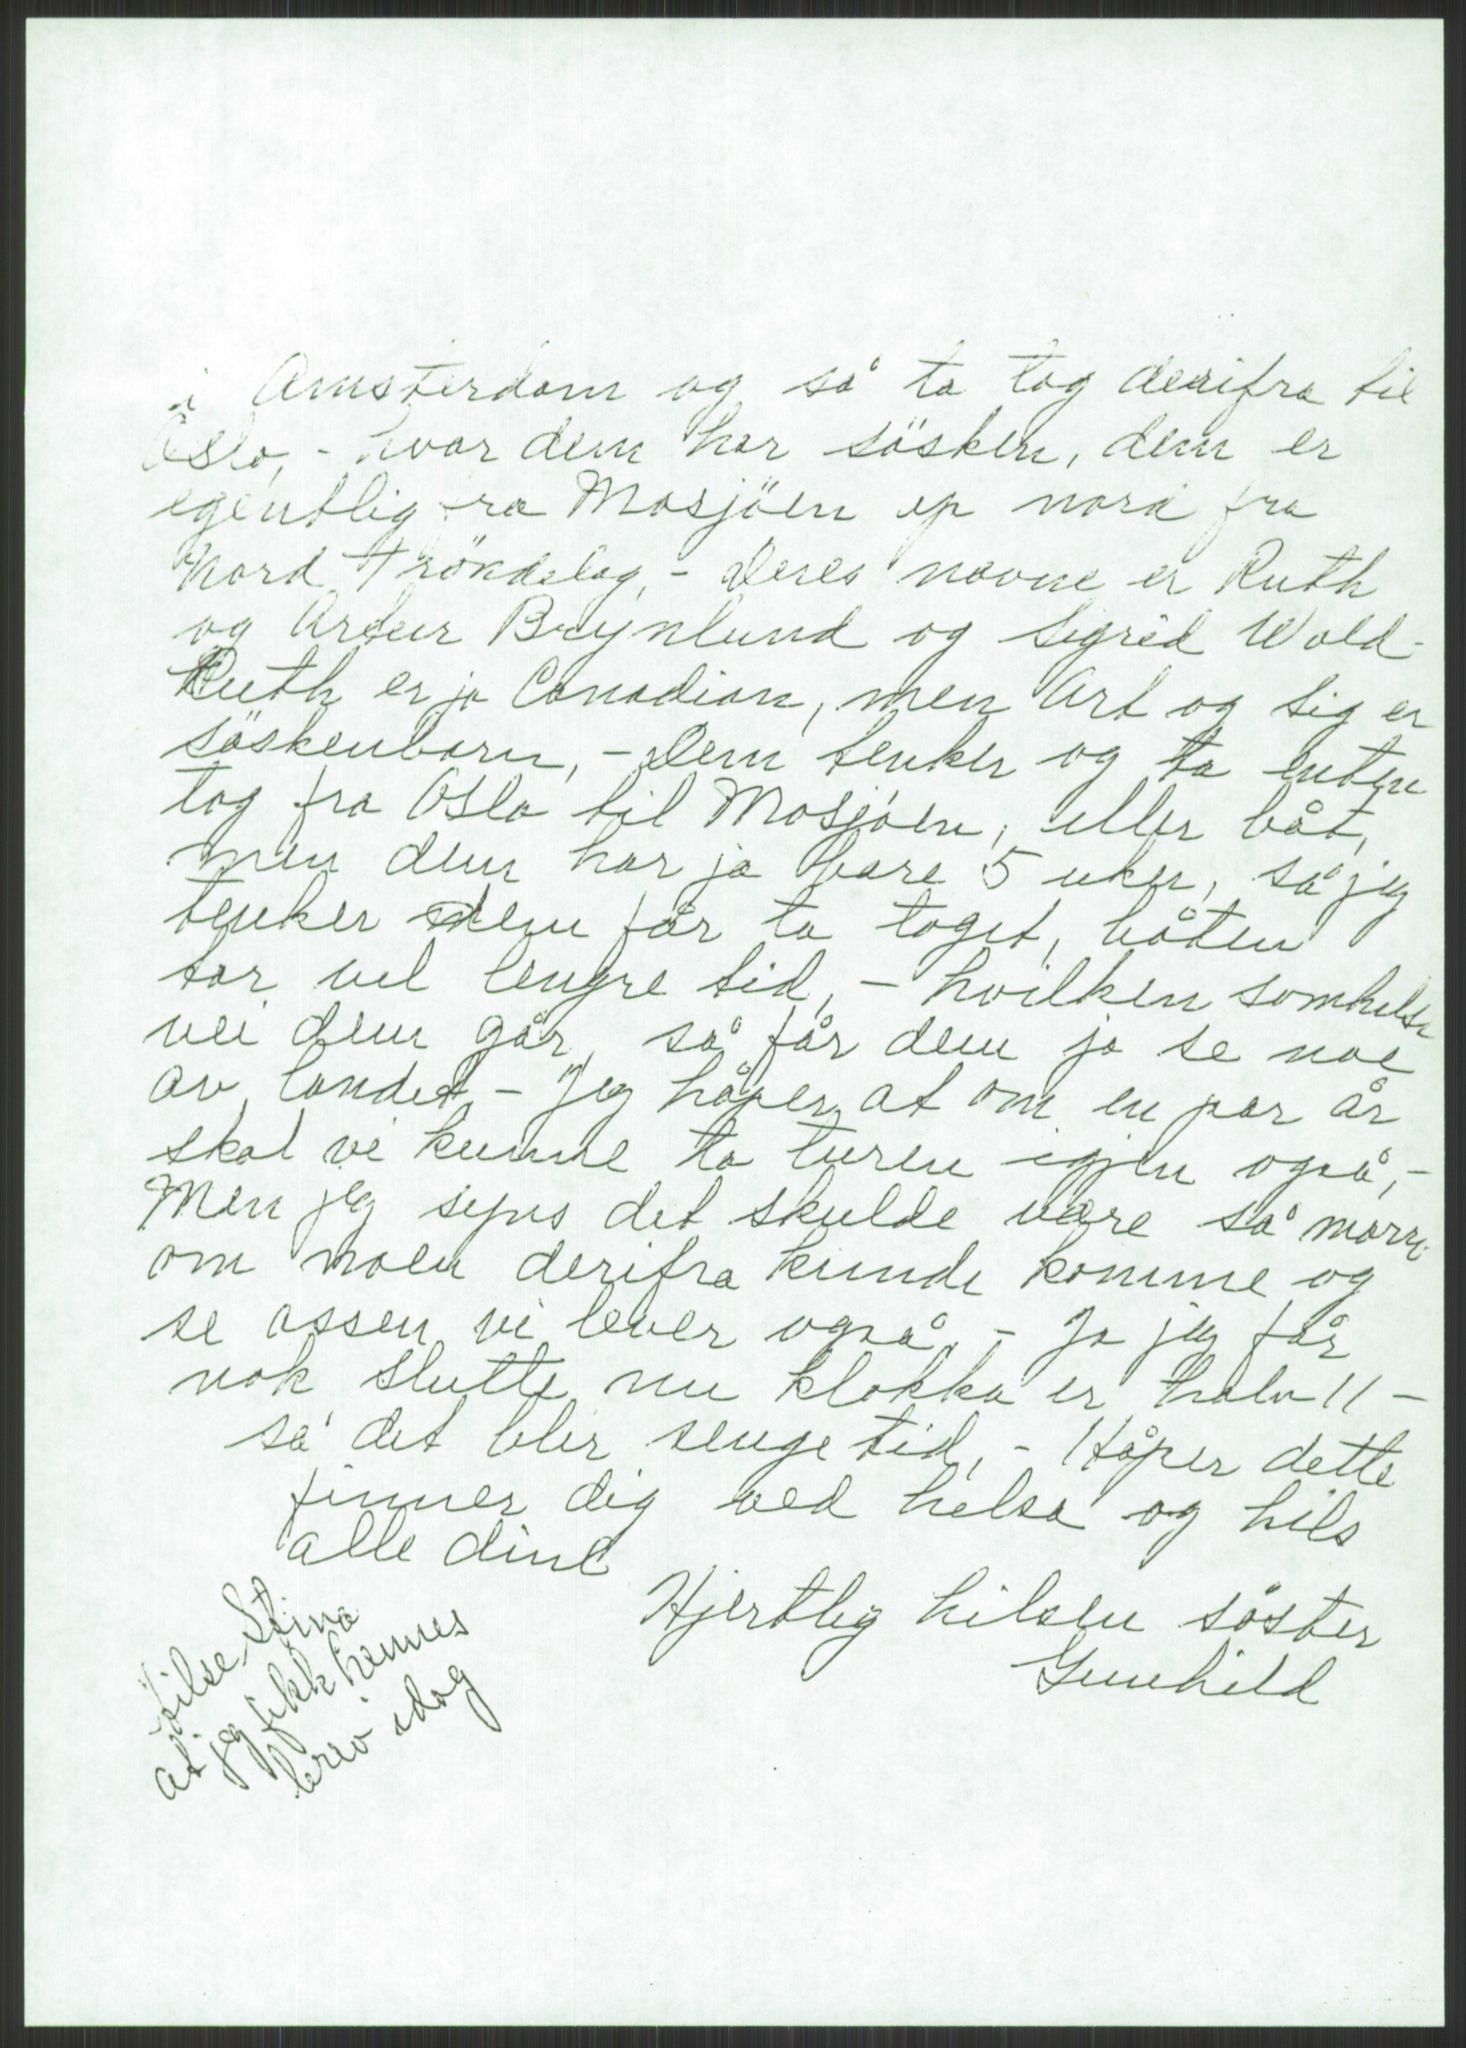 i Amsterdam og så ta tog derifra til
Oslo, - hvor dem har søsken, dem er
egentlig fra Mosjöen op nord fra
Nord Tröndelag, - Deres navne er Ruth
og Artur Brynlund og Sigrid Wold -
Ruth er jo Canadian, men Art og Sig er
söskenbarn, - Dem tenker og ta enten
tog fra Oslo til Mosjöen, eller båt,
men dem har jo bare 5 uker, så jeg
tenker dem får ta toget, båten
tar vel lengre tid, - hvilken somhelst
vei dem går, så får dem jo se noe
av landet - Jeg håper at om en par år
skal vi kunne ta turen igjen også, -
Men jeg syns det skulde være så morro
om noen derifra kunde komme og
se assen vi lever også, - Ja jeg får
nok slutte nu klokka er halv 11 -
så det blir senge tid, - Håper dette
finner dig ved helsa og hils
alle dine
Hjertlig hilsen söster
Gunhild
Hilse Stina
at jeg fikk hennes
brev idag